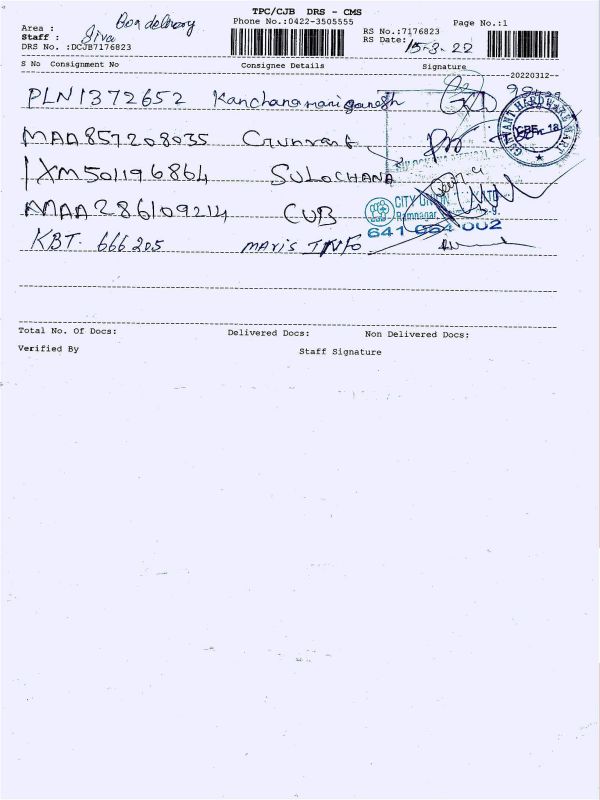 TPC/CJB DRS - CMS
Area : Box delivery Phone No.:0422-3505555 Page No.:1
Staff : Siva RS No.:7176823
DRS No. :DCJB7176823 RS Date: 15-3-22
S No Consignment No Consignee Details Signature
20220312
PLN1372652 Kanchanamani ganesh
MAA857208035 Gunvant
IXM501196864 SULOCHANA
MAA286109214 CUB
CITY UNION
Ramnagar,
641 002
KBT. 666205 Maris INFO
GUNVANT HARDWARE MART
Total No. Of Docs: Delivered Docs: Non Delivered Docs:
Verified By Staff Signature